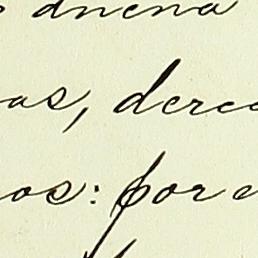 duena
as, derec
os: por e